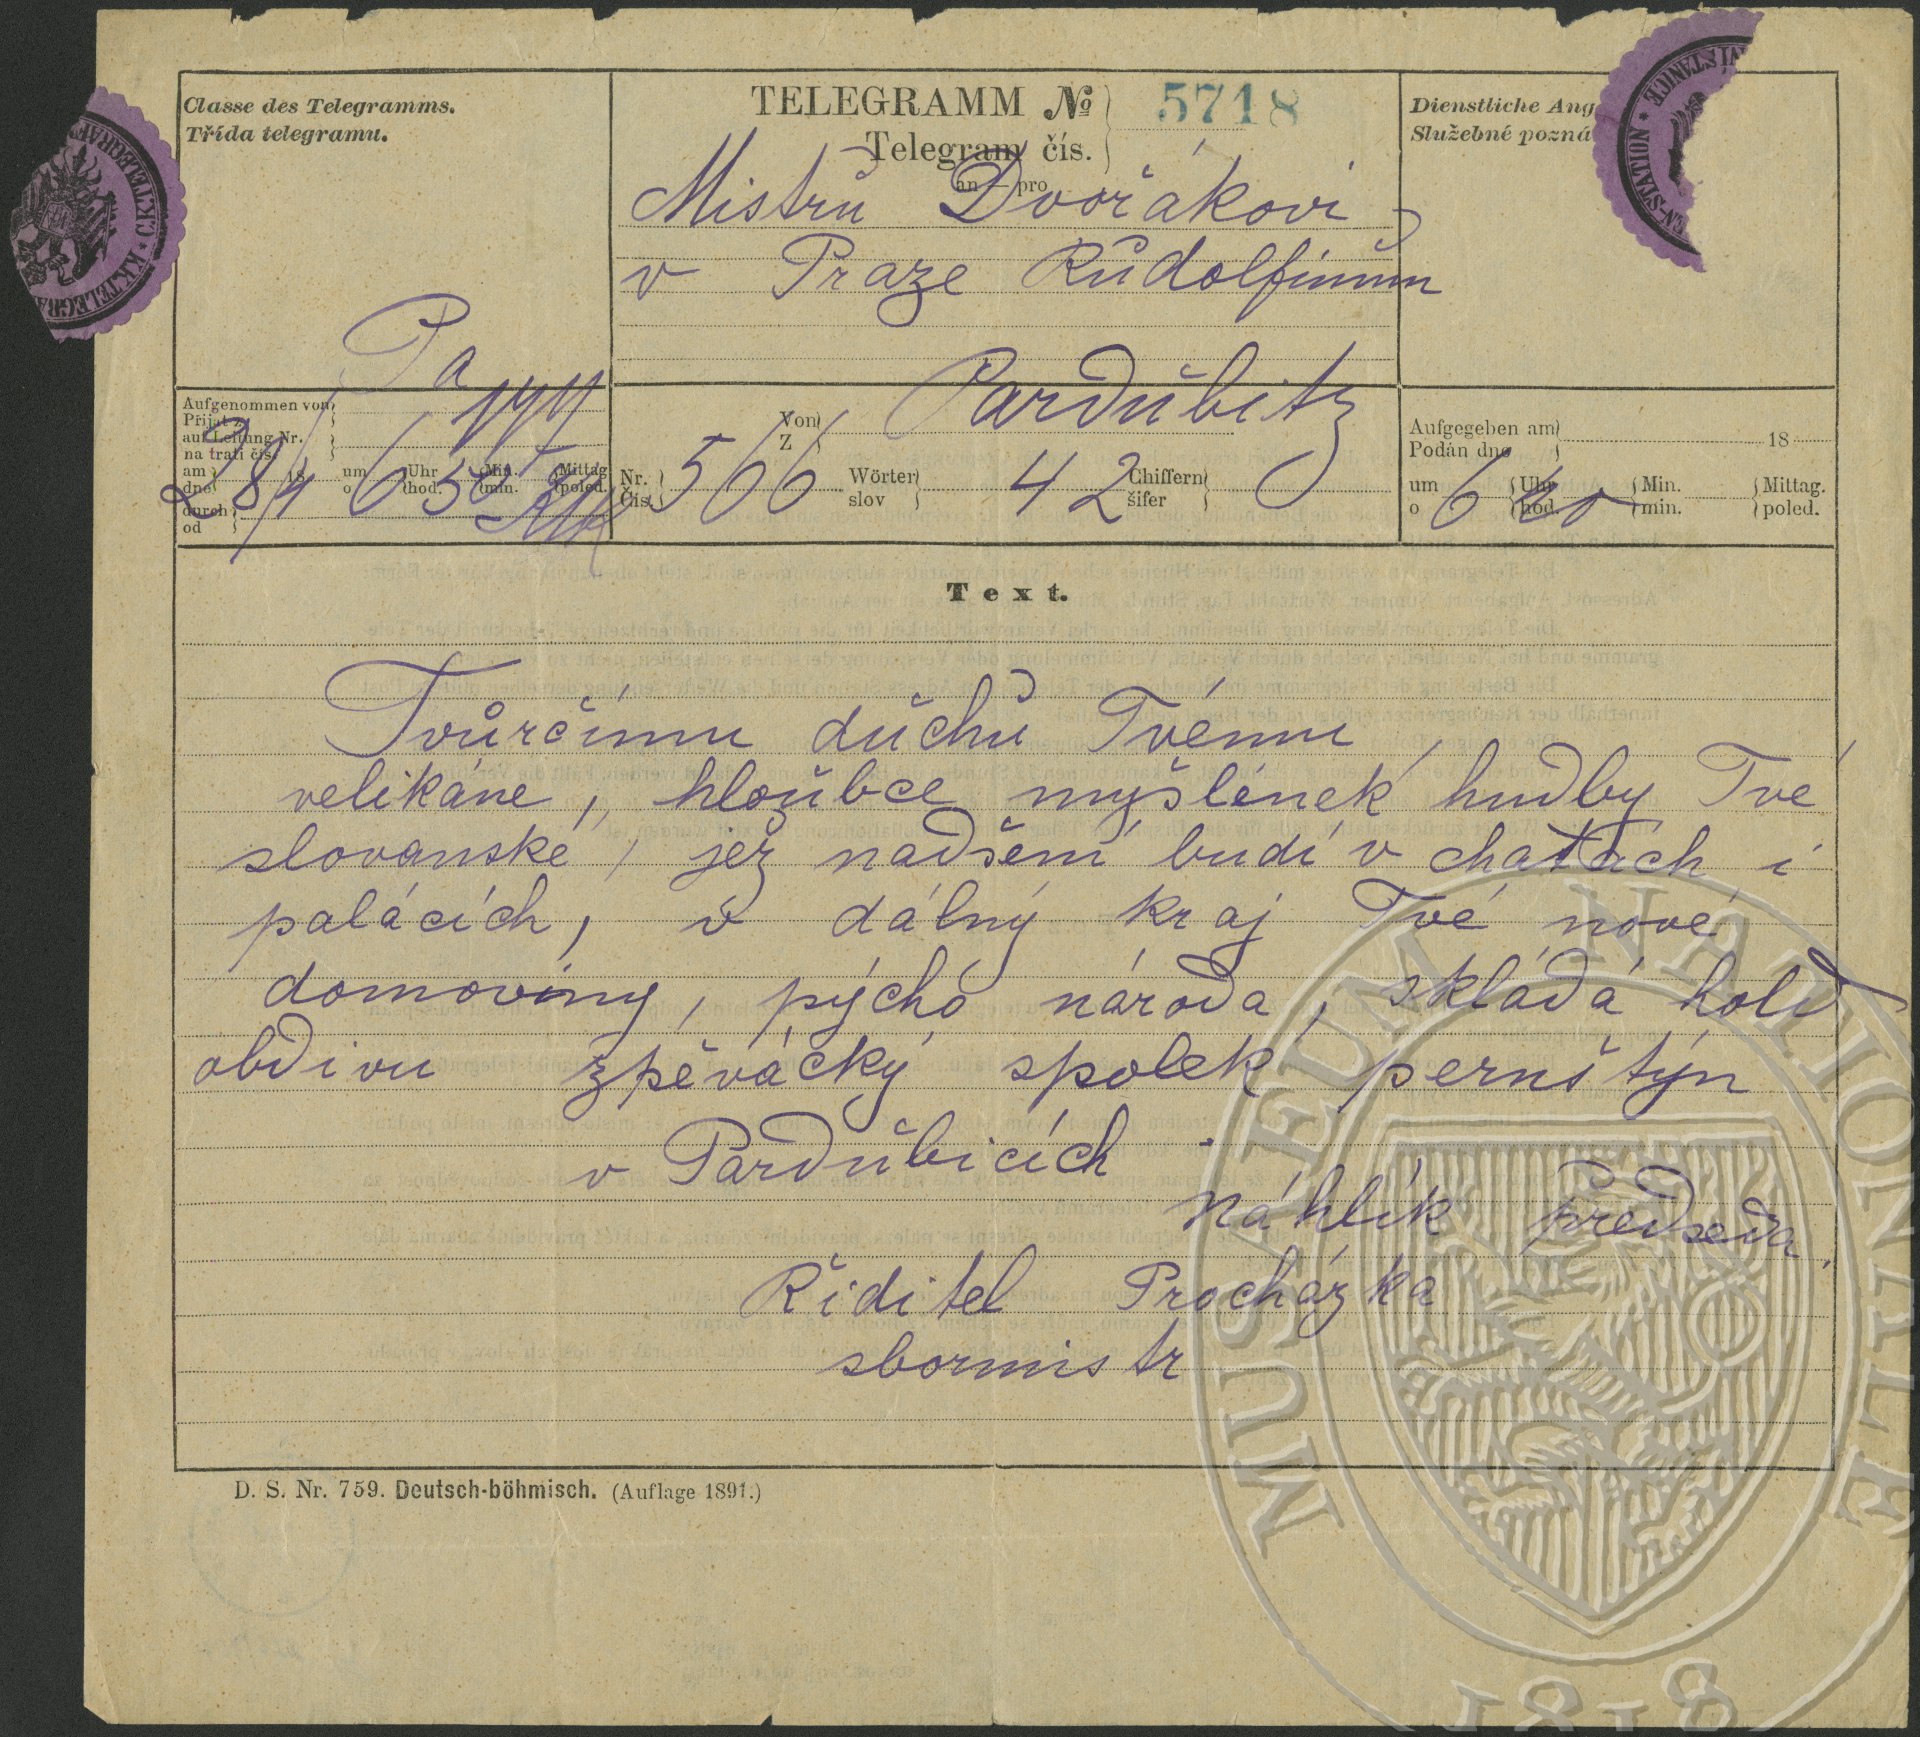 Classe des Telegramms.
Třída telegramu.
TELEGRAMM № 5718
Telegram čís.
an — pro
Dienstliche Ang
Služebné pozná
Mistrŭ Dvořákovi
v Praze Rŭdolfinŭm
Pa
Aufgenommen von
Přijat z
auf Leitung Nr.
na trati čís.
am 28/4 18 um 6 Uhr 50 Min. Mittag
dne o hod. min. poled.
durch
od
Von Pardŭbitz
Z
Nr. 566 Wörter 42 Chiffern
Čís. slov šifer
Aufgegeben am 18
Podán dne
um 6 Uhr 20 Min. Mittag.
o hod. min. poled.
Text.
Tvůrčímu dŭchŭ Tvému
velikáne, hloŭbce myšlének hudby Tvé
slovanské, jež nadšení budí v chatách i
palácích, v dálný kraj Tvé nové
domoviny, pýchó národa, skládá hold
obdivu zpěvácký spolek pernštýn
v Pardŭbicích.
náhlík předseda
Řiditel Procházka
sbormistr
D. S. Nr. 759. Deutsch-böhmisch. (Auflage 1891.)
MUSAEUM NATIONALE
1818